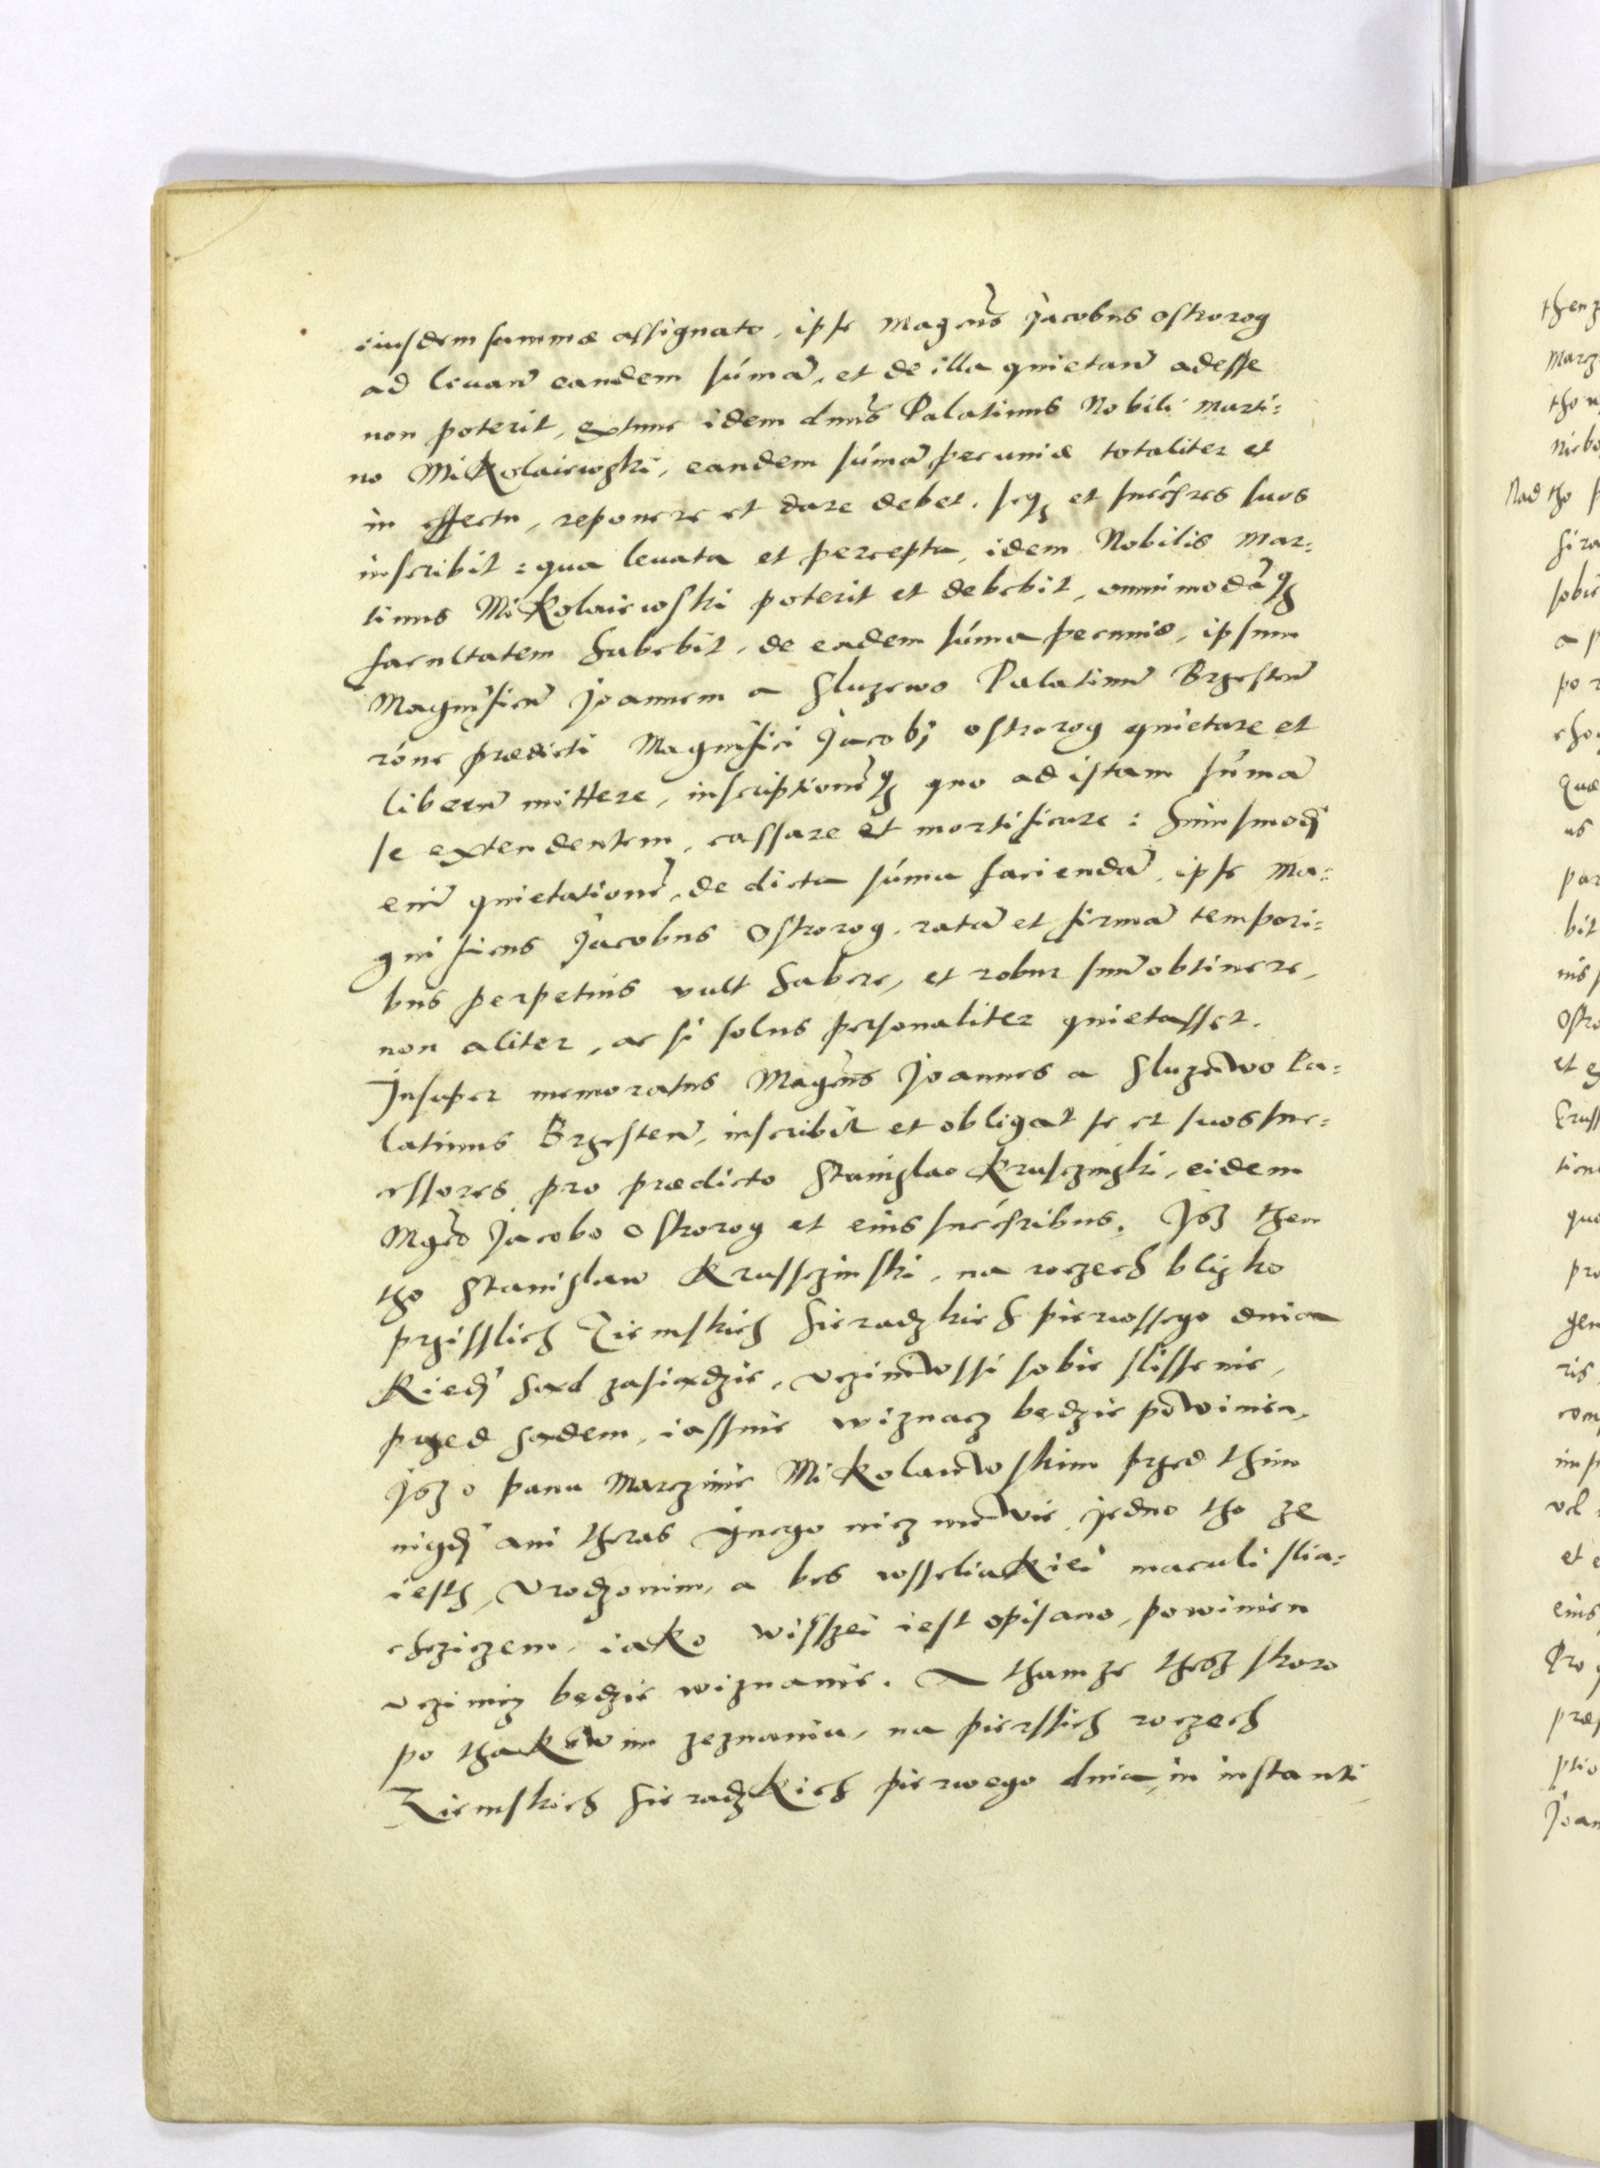 eiusdem summæ assignato, ipse Magcūs Jacobus Ostrorog
ad levanđ eandem sūmā, et de illa quietanđ adesse
non poterit, extunc idem dnūs Palatinus Nobili Marti:
no Mikolaiewski, eandem sūmā pecuniæ totaliter et
in effectu, reponere et dare debet, seqꝫ et succēsres suos
inscribit: qua levata et percepta, idem Nobilis Mar:
tinus Mikolaiewski poterit et debebit, omnimodāqꝫ
facultatem habebit, de eadem sūma pecuniæ, ipsum
Magnificū Joannem a Sluzewo Palatinū Brzesteñ
rōne prædicti Magnifici Jacobi Ostrorog quietare et
liberū mittere, inscriptionēqꝫ quo ad istam sūmā
se extendentem, cassare et mortificare: huiusmodi
eiñ quietationē, de dicta sūma faciendā, ipse Ma:
gnificus Jacobus Ostrorog, ratā et firmā tempori:
bus perpetuis vult habere, et robur suū obtinere,
non aliter, ac si solus personaliter quietasset.
Insuper memoratus Magcūs Joannes a Sluzewo Pa:
latinus Brzesteñ, inscribit et obligat se et suos suc:
cessores pro prædicto Stanislao Krusczinski, eidem
Mgco Jacobo Ostrorog et eius succēsribus. Jsz then
tho Stanislaw Krussczinski, na roczech blizko
przisslich Ziemskich Sieradzkich pierwssego dnia
Kiedi sąd zasiądzie, vcziniwssi sobie slissenie,
przed sądem, iassnie wiznacz będzie powinien,
Jsz o panu Marczinie Mikolaiewskim przed thim
nigdi ani theras ynego nicz niewie, jedno tho ze
iesth, Vrodzonim, a bes wsseliakiei maculi slia:
chczicem, iako wisszei iest opisano, powinien
vczinicz będzie wiznanie. A thamze thesz skoro
po thakowim zeznaniu, na pierssich roczech
Ziemskich Sieradzkich pierwego dnia, in instanti
thenz
Marcz
niebo
Nad tho
sobie
a p
por
Quæ
us
par
bit
Ostro
et
quo
pro
gen
ris
com
vel
et e
eius
Pro
præ
ptio
Joan